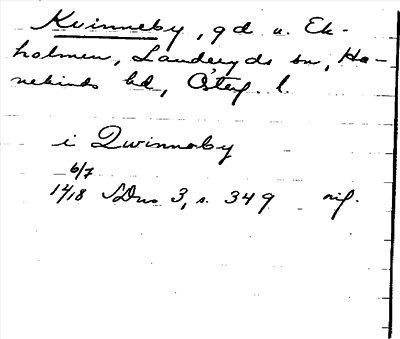 Kvinneby, gd u. Ek-
holmen, Landeryds sn, Ha-
nekinds hd, Österg. l.
i Qwinnaby
6/7
1418 SDns 3, s. 349 nif.